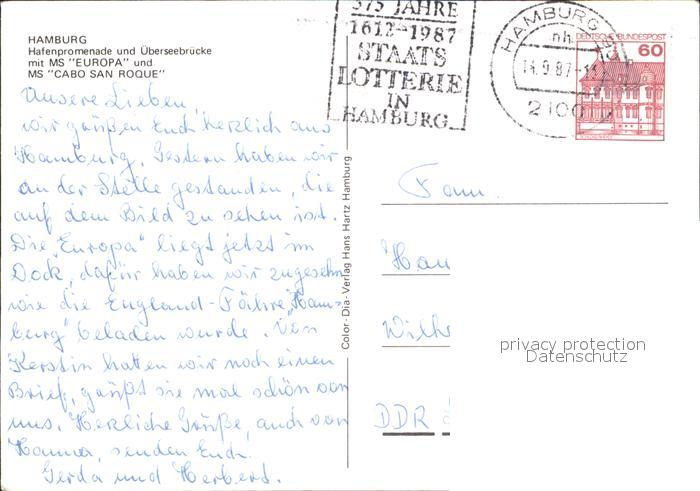 HAMBURG
Hafenpromenade und Überseebrücke
mit MS "EUROPA" und
MS "CABO SAN ROQUE"
375 JAHRE
1612-1987
STAATS
LOTTERIE
IN
HAMBURG
HAMBURG
nh
14.9.87
2100
DEUTSCHE BUNDESPOST
60
Unsere Lieben,
wir grüßen Euch herzlich aus
Hamburg. Gestern haben wir
an der Stelle gestanden, die
auf dem Bild zu sehen ist.
Die "Europa" liegt jetzt im
Dock, dafür haben wir zugesehn
wie die England-Fähre "Ham-
burg" beladen wurde. Von
Kerstin hatten wir noch einen
Brief, grüßt sie mal schön von
uns. Herzliche Grüße, auch von
Hanna, senden Euch
Gerda und Herbert.
Color-Dia-Verlag Hans Hartz Hamburg
Fam.
Han
Wilh
DDR
privacy protection
Datenschutz